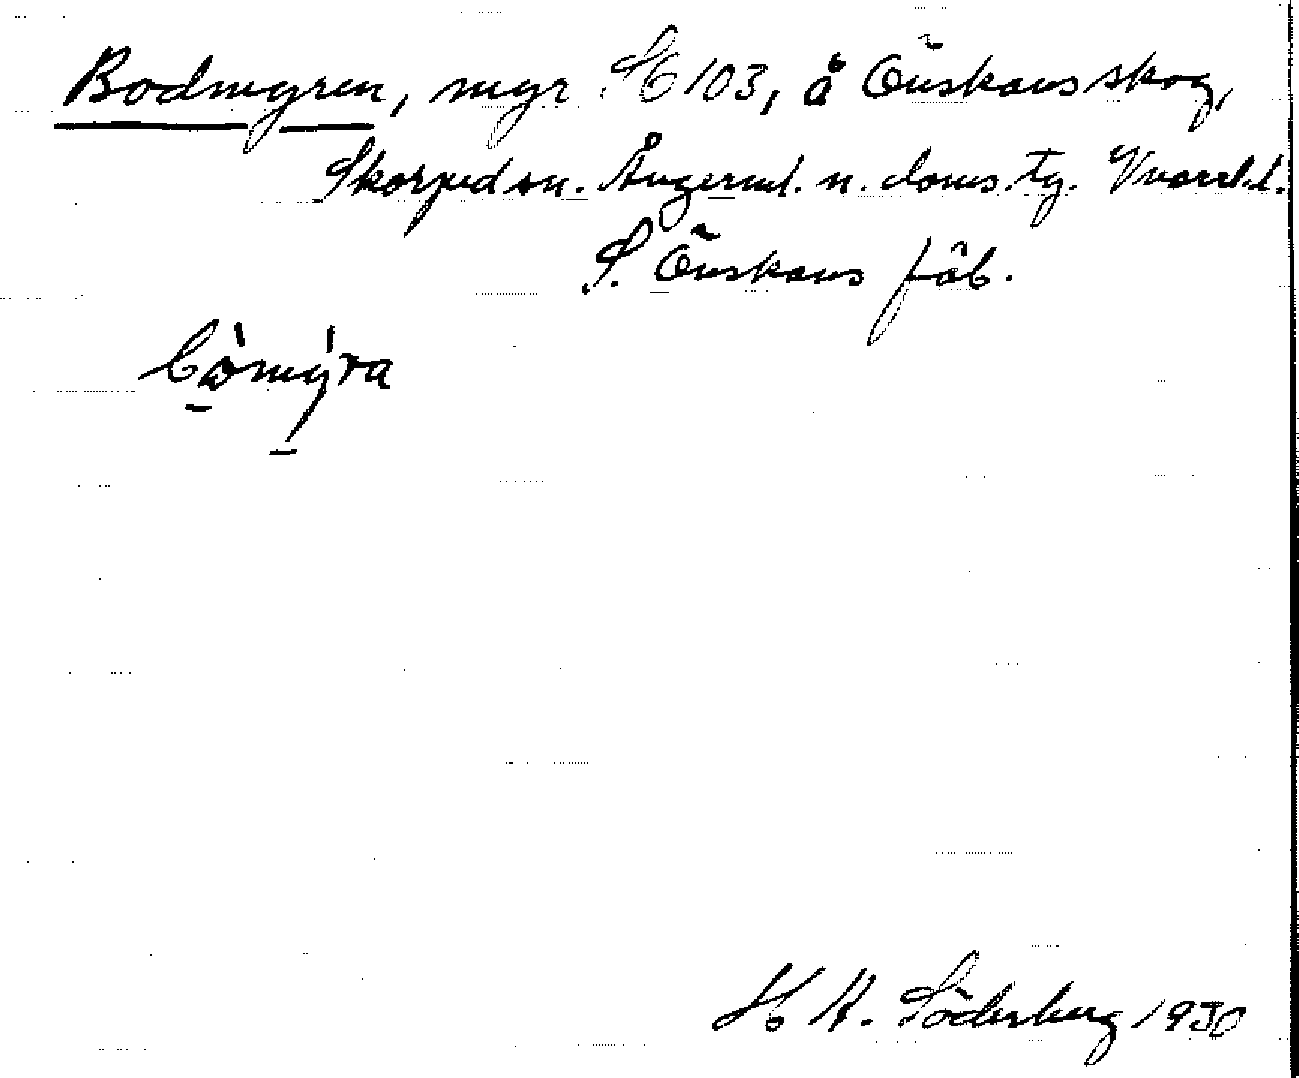 Bodmyren, myr St 103, å Önskans skog,
Skorped sn. Ångerml. n. doms. tg. V
S. Önskans fäb.
bòmýra
H A. Söderberg 1930